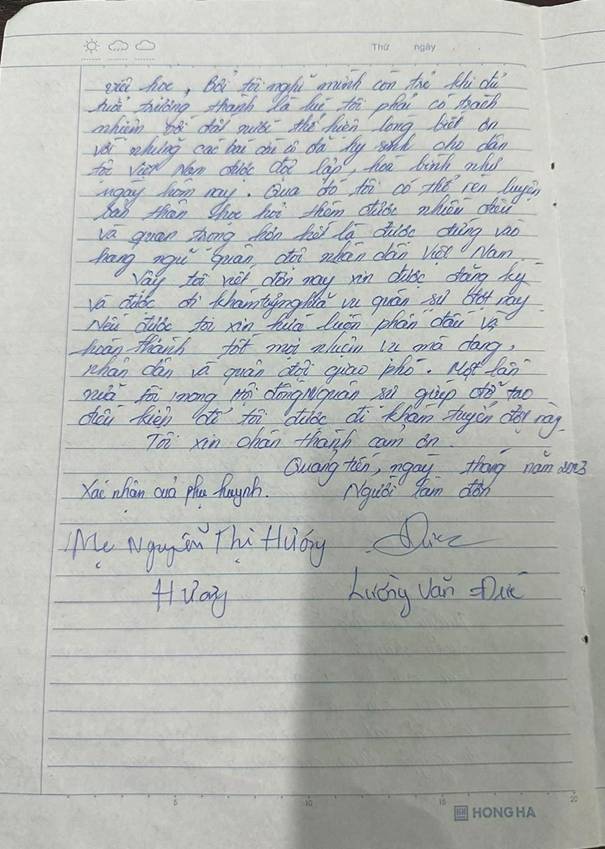 Thứ ngày
viết học, Bởi tôi nghĩ mình còn trẻ khi đủ
tuổi trưởng thành là lúc tôi phải có trách
nhiệm với đất nước thể hiện lòng biết ơn
với những các bác đã hy sinh cho dân
tộc Việt Nam được độc lập, hoà bình như
ngày hôm nay. Qua đó tôi có thể rèn luyện
bản thân học hỏi thêm được nhiều điều
và quan trọng hơn hết là được đứng vào
hàng ngũ quân đội nhân dân Việt Nam
Vậy tôi viết đơn này xin được đăng ký
và được đi khám tuyển nghĩa vụ quân sự đợt này
Nếu được tôi xin hứa luôn phấn đấu và
hoàn thành tốt mọi nhiệm vụ mà đảng,
nhân dân và quân đội giao phó. Một lần
nữa tôi mong Hội đồng quân sự giúp đỡ tạo
điều kiện để tôi được đi khám tuyển đợt này.
Tôi xin chân thành cảm ơn.
Quảng tiến, ngày tháng năm 2023
Xác nhận của phụ huynh. Người làm đơn
Mẹ Nguyễn Thị Hương Đức
Hương Lường Văn Đức
5 10 15 20
HONG HA